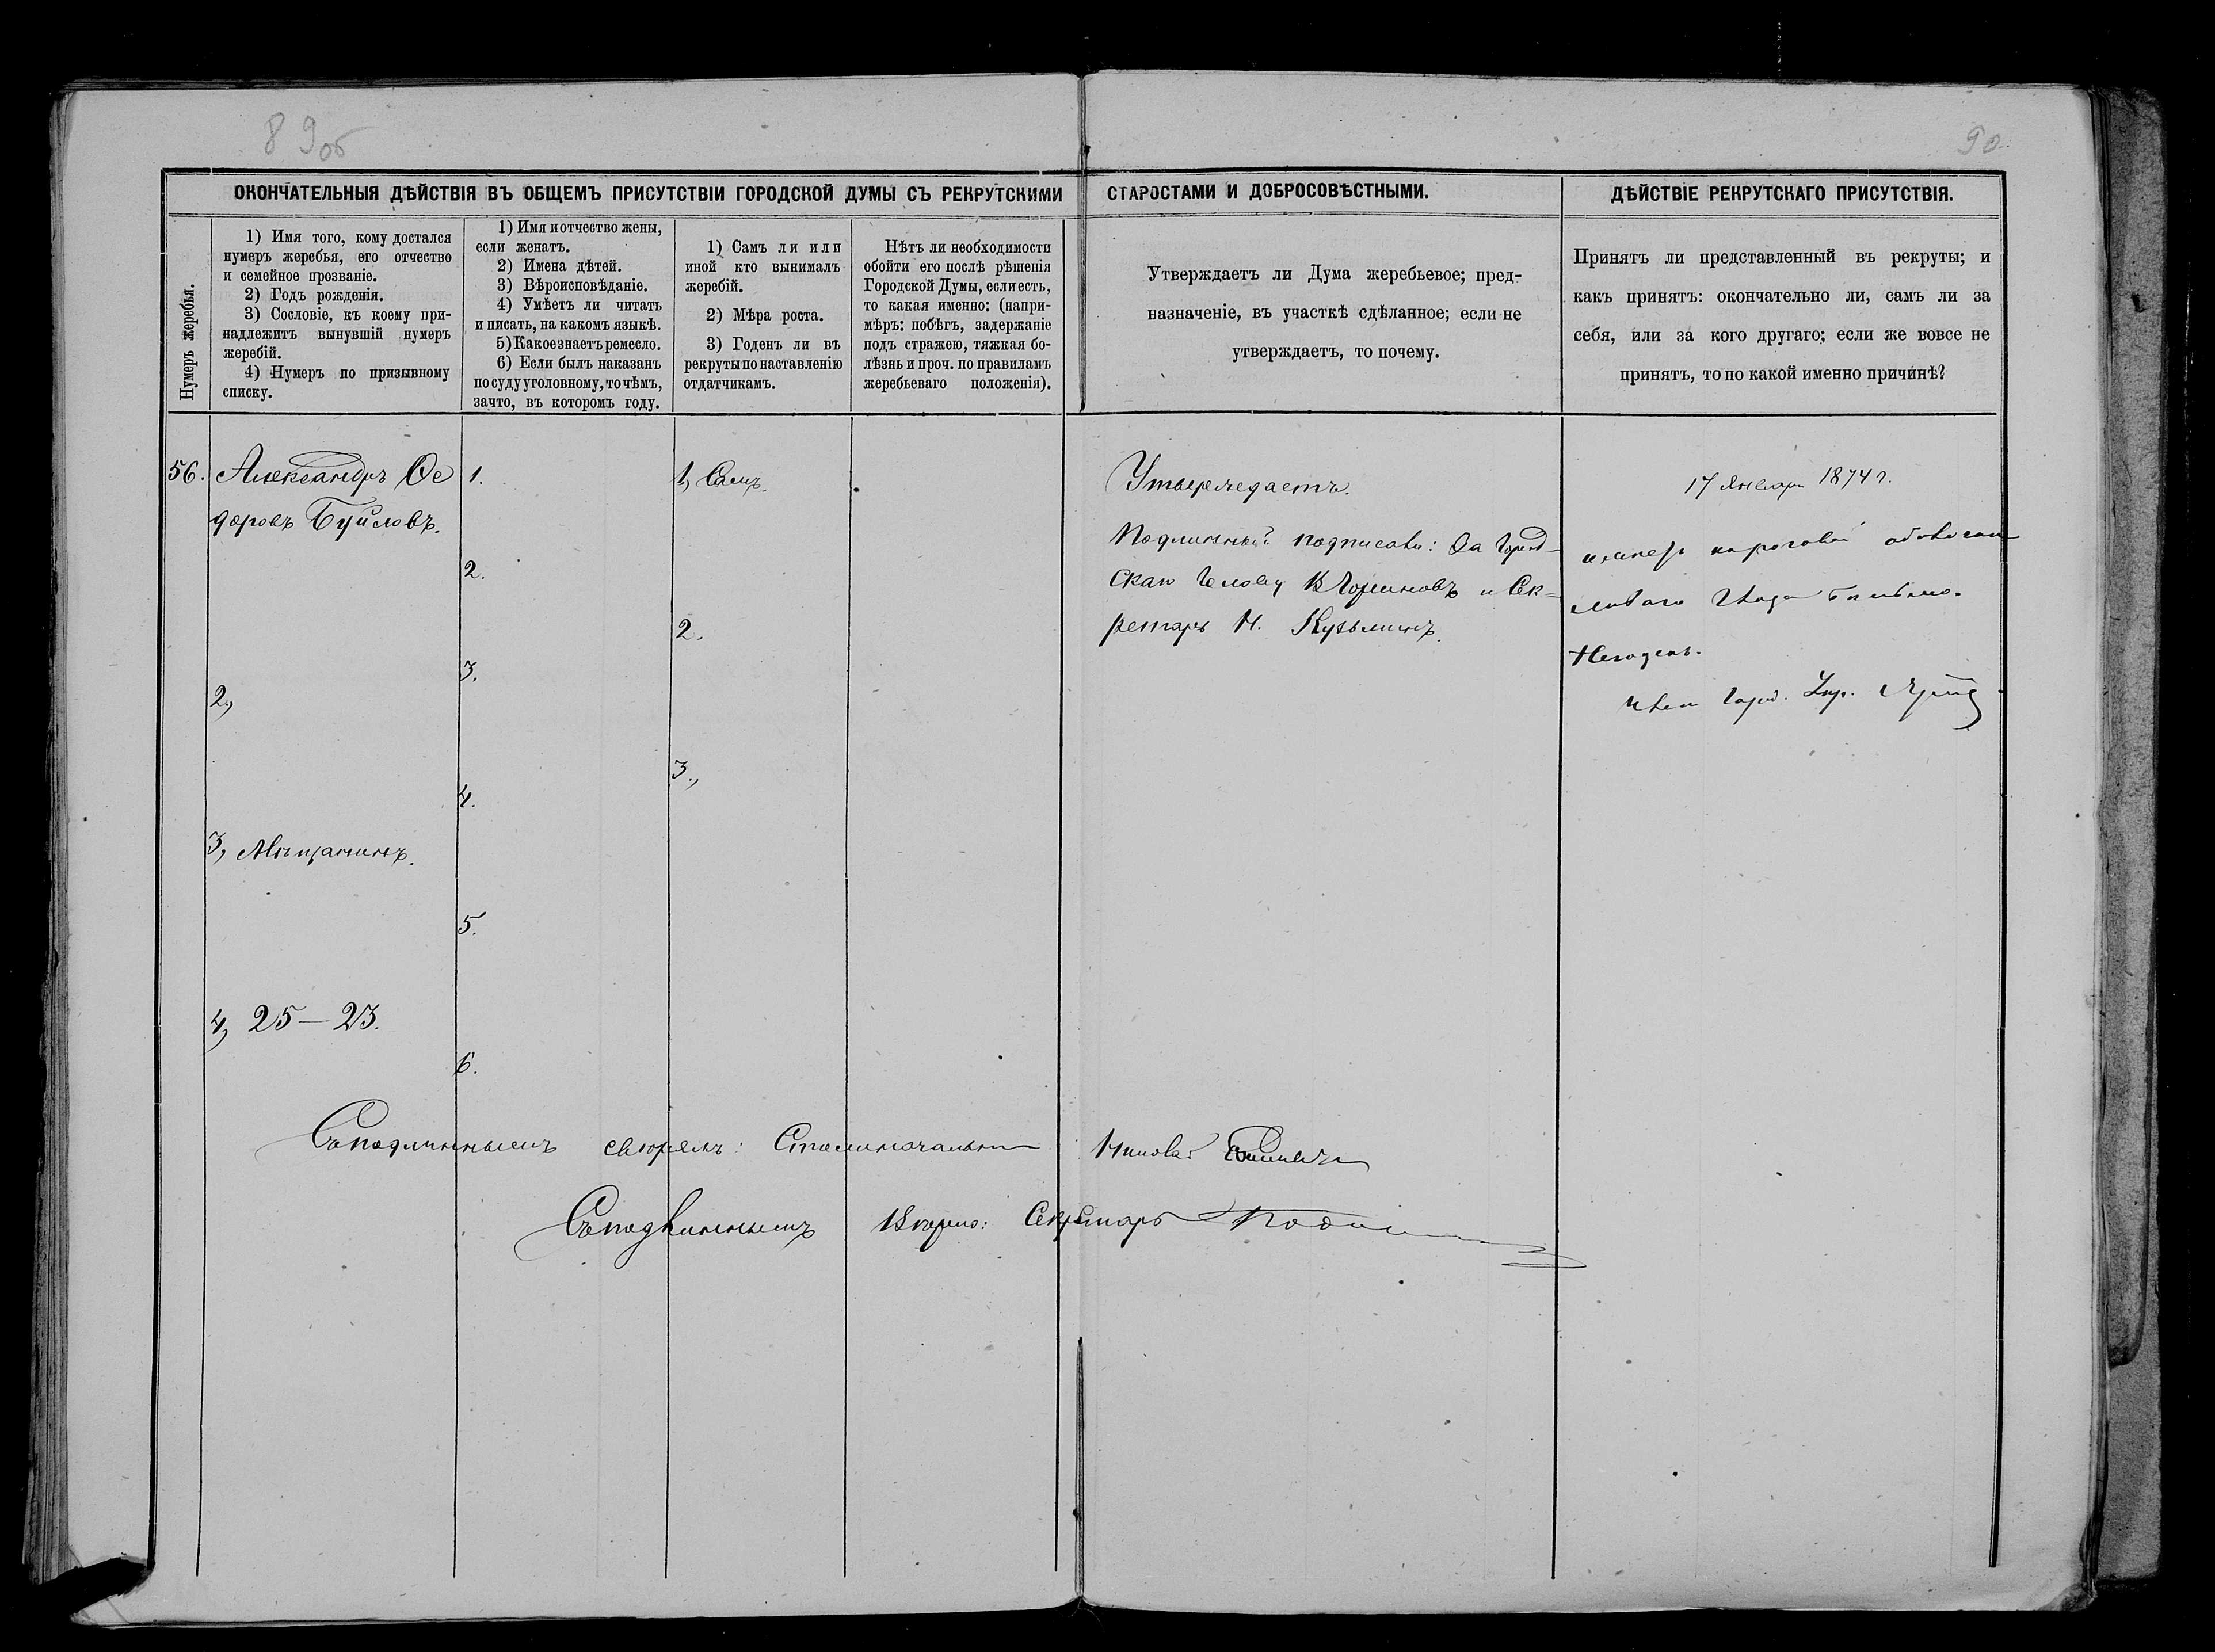 89об
90
ОКОНЧАТЕЛЬНЫЯ ДѢЙСТВІЯ ВЪ ОБЩЕМЪ ПРИСУТСТВІИ ГОРОДСКОЙ ДУМЫ СЪ РЕКРУТСКИМИ СТАРОСТАМИ И ДОБРОСОВѢСТНЫМИ.
ДѢЙСТВІЕ РЕКРУТСКАГО ПРИСУТСТВІЯ.
Нумеръ жеребья.
1) Имя того, кому достался
нумеръ жеребья, его отчество
и семейное прозваніе.
2) Годъ рожденія.
3) Сословіе, къ коему при-
надлежитъ вынувшій нумеръ
жеребій.
4) Нумеръ по призывному
списку.
1) Имя и отчество жены,
если женатъ.
2) Имена дѣтей.
3) Вѣроисповѣданіе.
4) Умѣетъ ли читать
и писать, на какомъ языкѣ.
5) Какое знаетъ ремесло.
6) Если былъ наказанъ
по суду уголовному, то чѣмъ,
за что, въ которомъ году.
1) Самъ ли или
иной кто вынималъ
жеребій.
2) Мѣра роста.
3) Годенъ ли въ
рекруты по наставленію
отдатчикамъ.
Нѣтъ ли необходимости
обойти его послѣ рѣшенія
Городской Думы, если есть,
то какая именно: (напри-
мѣръ: побѣгъ, задержаніе
подъ стражею, тяжкая бо-
лѣзнь и проч. по правиламъ
жеребьеваго положенія).
Утверждаетъ ли Дума жеребьевое; пред-
назначеніе, въ участкѣ сдѣланное; если не
утверждаетъ, то почему.
Принятъ ли представленный въ рекруты; и
какъ принятъ: окончательно ли, самъ ли за
себя, или за кого другаго; если же вовсе не
принятъ, то по какой именно причинѣ?
56.
Александръ Ѳе
доровъ Буйловъ.
2,
3, Мѣщанинъ.
4, 25—23.
1.
2.
3.
4.
5.
6.
1, Самъ.
2.
3.,
Утверждаетъ.
Подлинный подписали: За Город-
скаго Голову и Сек-
ретарь Н. Кузьминъ.
17 Января 1874 г.
Негоденъ.
Член Город. Упр.
Съ подлиннымъ свѣрялъ: Столоначальник
Съ подлиннымъ вѣрно: Секретарь